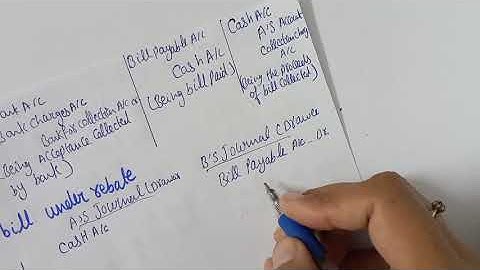 Bank A/C
Bank Charges A/C
Bank for collection A/C
(Being Acceptance collected
by bank)
Bill Payable A/C
Cash A/C
(Being bill Paid)
Cash A/C
A'S Account
Collection chrg
A/C
(Being the proceeds
of bill collected)
bill under rebate
A'S Journal (Drawer
Cash A/C
B'S Journal (Drawee
Bill Payable A/C - Dr.